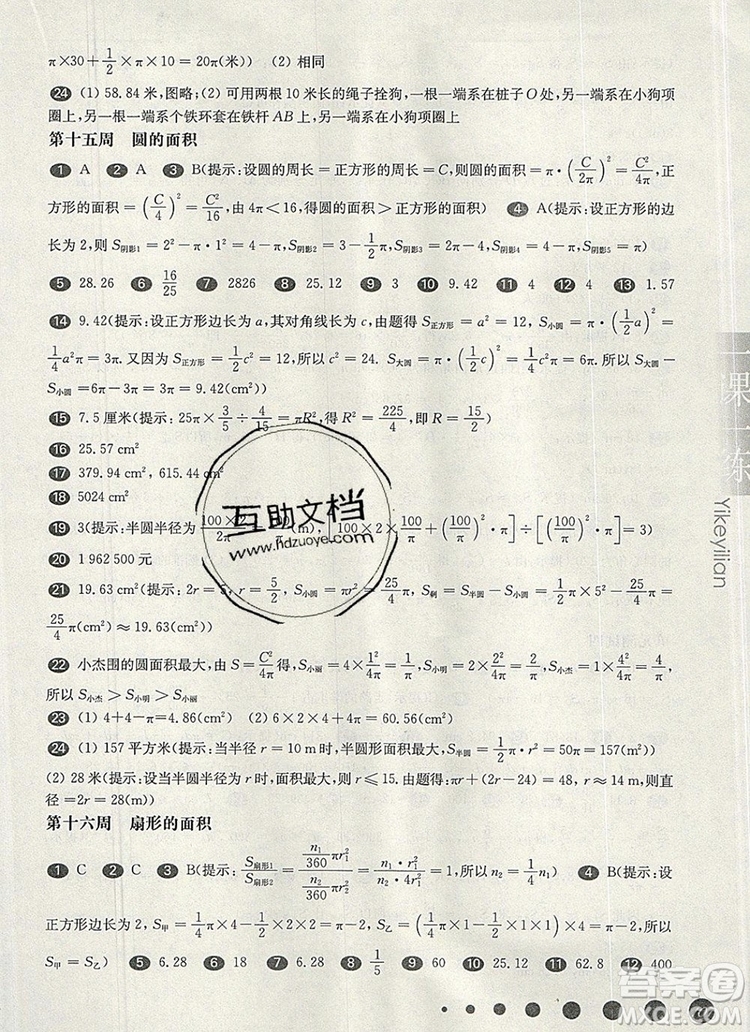 π×30+1/2×π×10=20π(米)) (2) 相同
24 (1) 58.84 米,图略;(2) 可用两根 10 米长的绳子拴狗,一根一端系在桩子 O 处,另一端系在小狗项
圈上,另一根一端系个铁环套在铁杆 AB 上,另一端系在小狗项圈上
第十五周 圆的面积
1 A 2 A 3 B(提示:设圆的周长=正方形的周长=C,则圆的面积=π·(C/2π)²=C²/4π,正
方形的面积=(C/4)²=C²/16,由 4π<16,得圆的面积>正方形的面积) 4 A(提示:设正方形的边
长为 2,则 S阴影1=2²-π·1²=4-π,S阴影2=3-1/2π,S阴影3=4-1/2π)
5 28.26 6 16/25 7 2826 8 25.12 9 3 10 9.42 11 4 12 4 13 1.57
14 9.42(提示:设正方形边长为 a,其对角线长为 c,由题得 S正方形=a²=12,S小圆=(1/2a)²π=
1/4a²π=3π. 又因为 S正方形=1/2c²=12,所以 c²=24. S大圆=(1/2c)²π=1/4c²π=6π. 所以 S大圆-
S小圆=6π-3π=3π=9.42(cm²))
15 7.5 厘米(提示:25π×3/5÷4/15=πR²,得 R²=225/4,即 R=15/2)
16 25.57 cm²
17 379.94 cm²,615.44 cm²
18 5024 cm²
19 3(提示:半圆半径为 100×2/2π (m), 100×2×100/π+(100/π)²·π]÷[(100/π)²·π]=3)
20 1 962 500 元
21 19.63 cm²(提示:2r=5,r=5/2,S小圆=πr²=25/4π,S剩=1/2×π×5²-25/4π=25/2π-25/4π=
25/4π(cm²)≈19.63(cm²))
22 小杰围的圆面积最大,由 S=C²/4π得,S小丽=4×1²/4π=4/4π,S小明=2×2²/4π=8/4π,S小杰=1×4²/4π=16/4π,
所以 S小杰>S小明>S小丽
23 (1) 4+4-π=4.86(cm²) (2) 6×2×4+4π=60.56(cm²)
24 (1) 157 平方米(提示:当半径 r=10 m 时,半圆形面积最大,S半圆=1/2π·r²=50π=157(m²))
(2) 28 米(提示:设当半圆半径为 r 时,面积最大,则 r≤15. 由题得:πr+(24-2r)=48,r≈14 m,则直
径=2r=28(m))
第十六周 扇形的面积
1 C 2 C 3 B(提示:S扇形1/S扇形2=(n₁/360πr₁²)/(n₂/360πr₂²)=n₁·r₁²/n₂·4r₁²=1,所以 n₂=1/4n₁) 4 B(提示:设
正方形边长为 2,S甲=1/4π×4-1/2π×2×1=π-π/2=π/2,S乙=(1/4π×1-1/2×1×1)×4=π-2,所以
S甲=S乙) 5 6.28 6 18.84 8 1/5 9 6.28 10 25.12 11 62.8 12 400
一课一练
Yikeyilian
互助文档
www.hdzuoye.com
答案圈
MXQE.COM